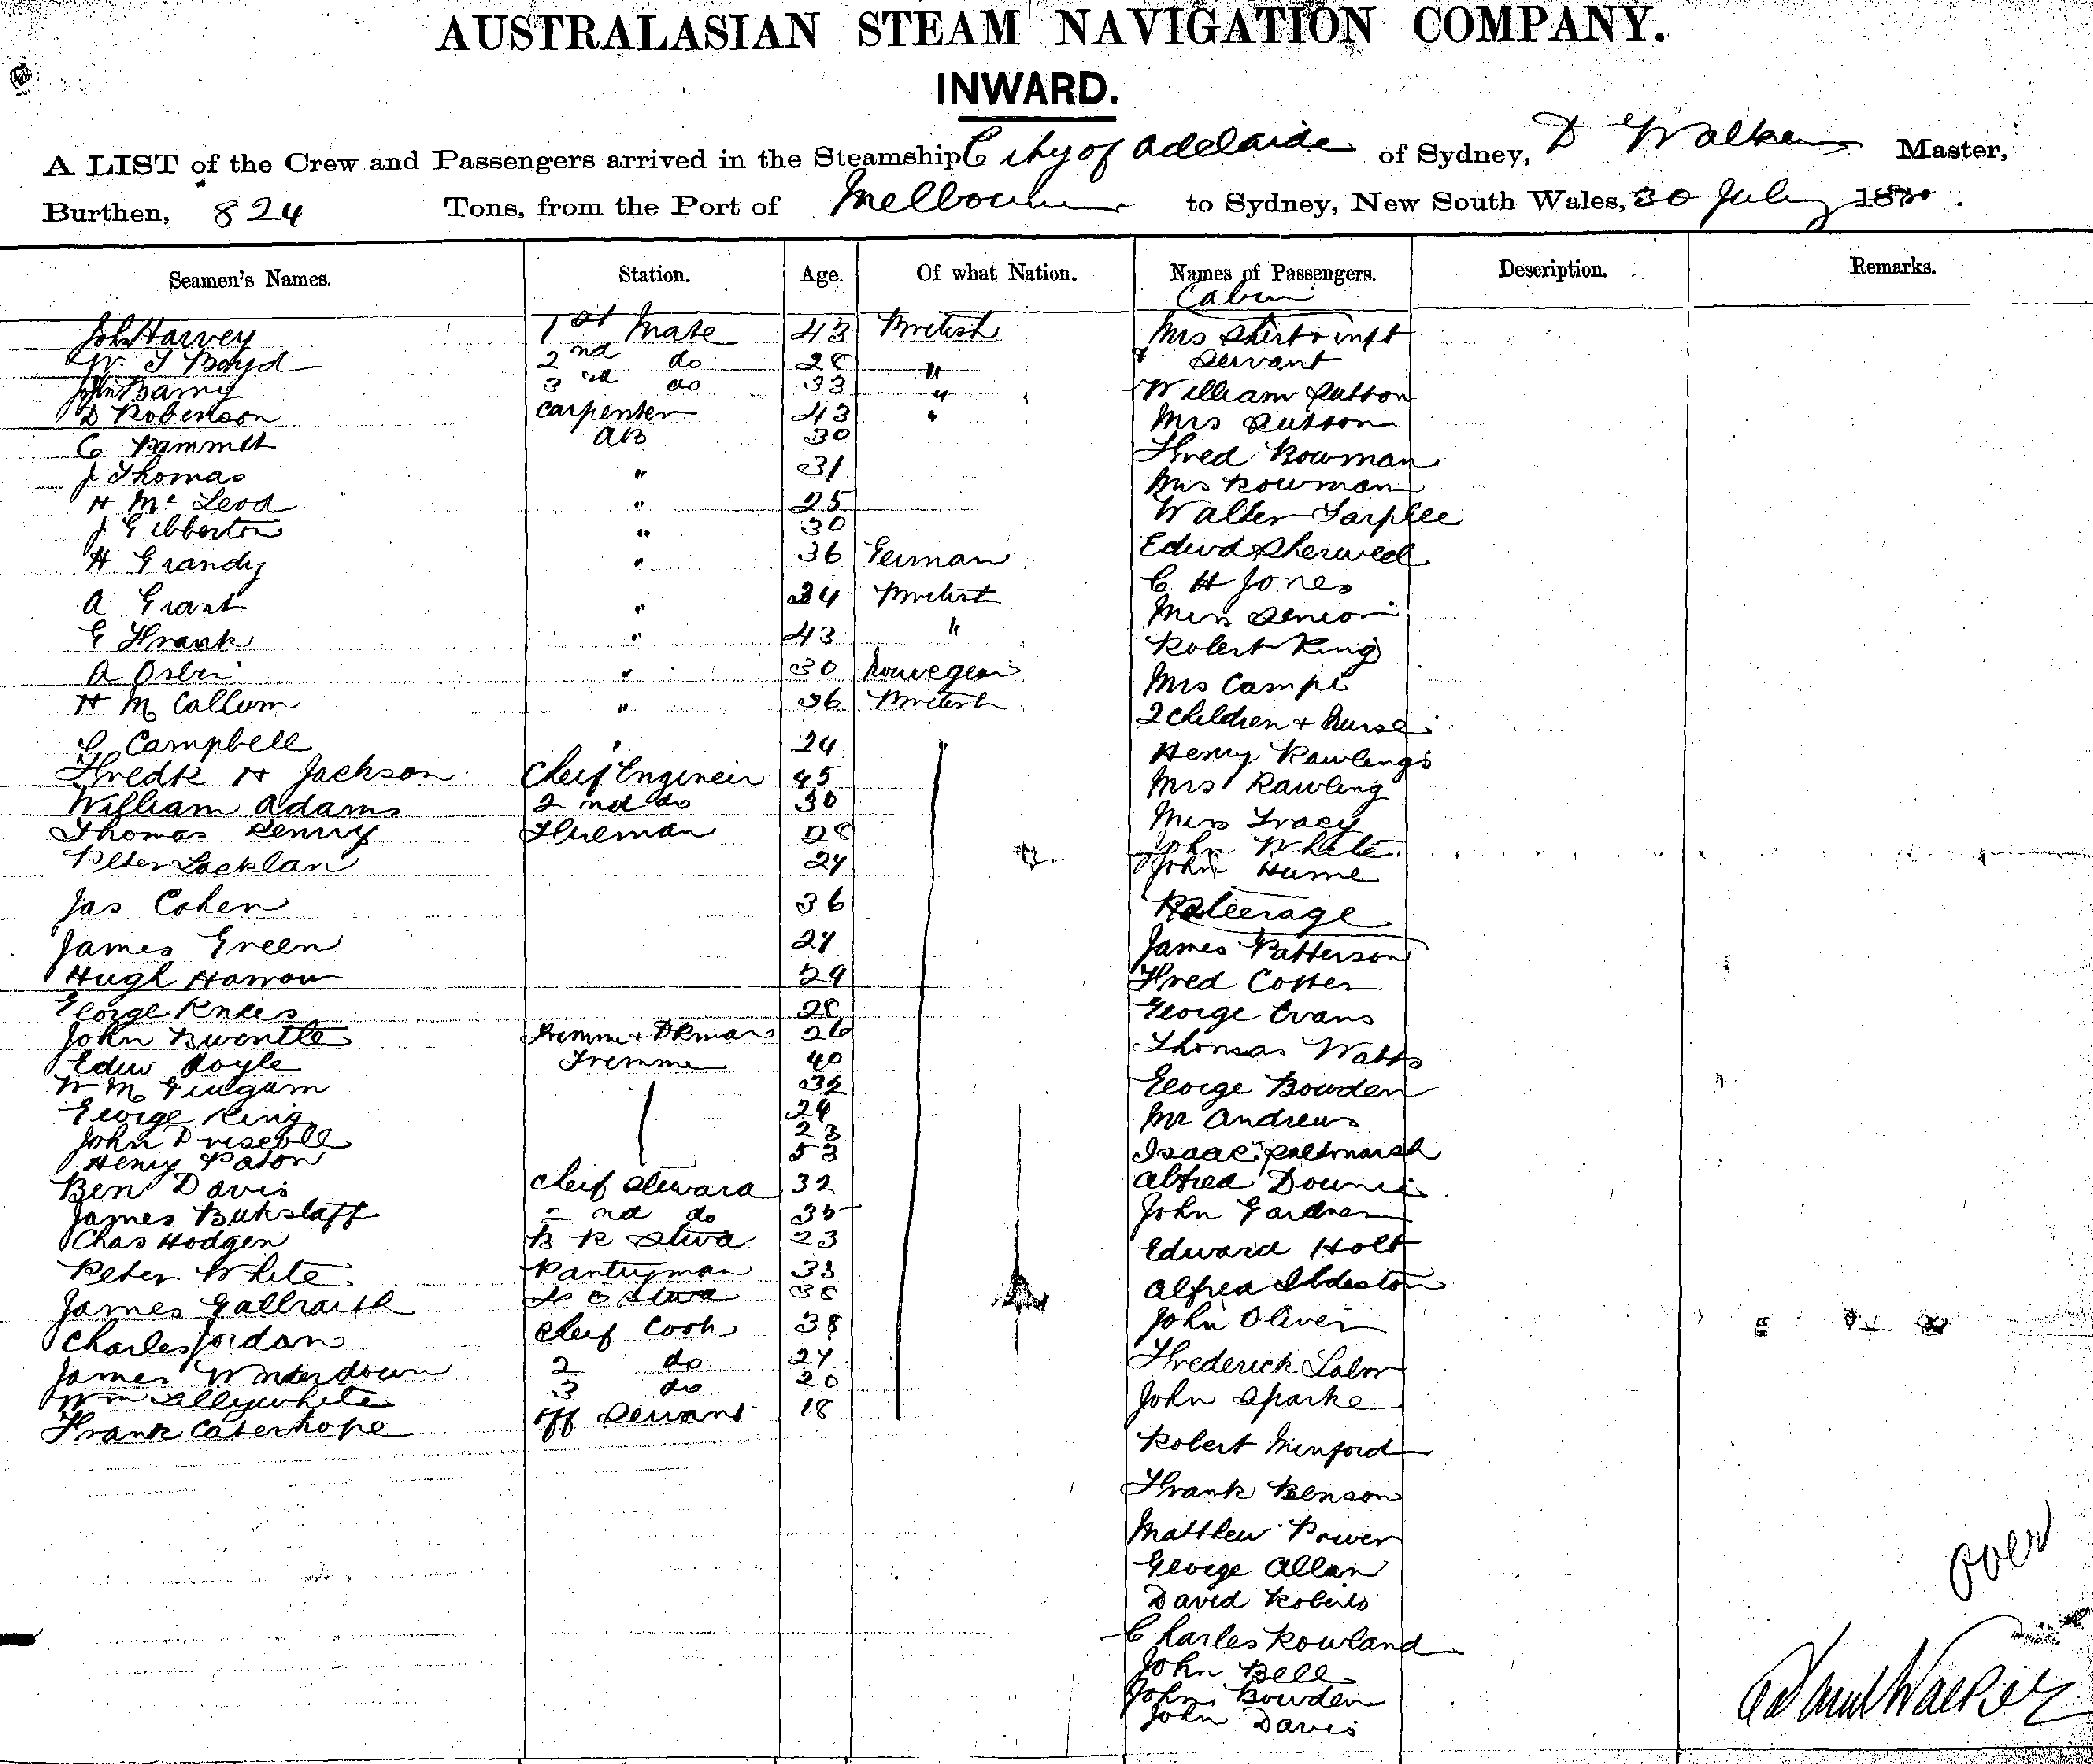 AUSTRALASIAN STEAM NAVIGATION COMPANY.
INWARD.
A LIST of the Crew and Passengers arrived in the Steamship City of Adelaide of Sydney, D Walker Master,
Burthen, 824 Tons, from the Port of Melbourne to Sydney, New South Wales, 30 July 1880.
Seamen's Names. Station. Age. Of what Nation. Names of Passengers. Description. Remarks.
Cabin
John Harvey 1st Mate 43 British Mrs + inft
W. J Boyd 2nd do 28 " & Servant
John Barry 3rd do 33 " William Sutton
D Robinson Carpenter 43 " Mrs Sutton
C AB 30 Fred Bowman
J Thomas " 31 Mrs Bowman
H Mc Leod " 25 Walter Tarplee
J Gibberton " 30 Edwd Sherwell
H Grandy " 36 German C H Jones
A Grant " 34 British Miss
G Frank " 43 " Robert King
A " 30 Norwegian Mrs Campi
H Mc Callum " 36 British 2 Children + Nurse
G Campbell " 24 Henry Rawlings
Fredk H Jackson Cheif Engineer 45 Mrs Rawling
William Adams 2nd do 30 Miss Tracy
Thomas Fireman 28 John White
Peter Lacklan 24 John Hume
Jas Cohen 36 Steerage
James Green 24 James Patterson
Hugh Harrow 29 Fred Cotter
George 28 George Evans
John 26 Thomas Watts
Edw Doyle Trimmer 40 George Bowden
W Mc 32 Mr Andrews
George King 24 Isaac Saltmarsh
John Driscoll 23 Alfred Downie
Henry Paton 53 John Gardner
Ben Davis Cheif Steward 32 Edward Holt
James Bukslaff 2nd do 35 Alfred
Chas Hodgen B R Stwd 23 John Oliver
Peter White Pantryman 38 Frederick Labor
James Galbraith Stwd John Sparke
Charles Jordan Cheif Cook 38 Robert Minford
James Winterdown 2 do 24 Frank Benson
Wm Lillywhite 3 do 20 Matthew Power
Frank Caterhope Off Servant 18 George Allan
David Roberts
Charles Rowland
John Bell
John Bowden
John Davis
Over
David Walker